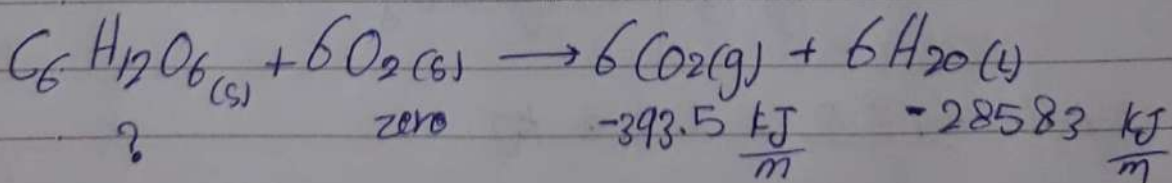 C6H12O6(s) + 6O2(s) → 6CO2(g) + 6H2O(l)
? zero -393.5 kJ/m -28583 kJ/m